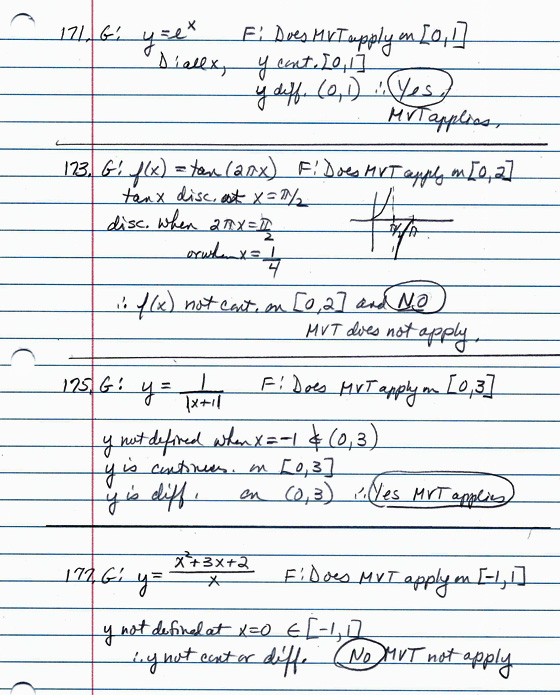 171. G: y=e^x F: Does MVT apply on [0,1]
D: all x, y cont. [0,1]
y diff. (0,1) ∴ Yes.
MVT applies.
173. G: f(x) = tan(2πx) F: Does MVT apply on [0,2]
tan x disc. at x = π/2
disc. when 2πx = π/2
or when x = 1/4
π/2 π
∴ f(x) not cont. on [0,2] and NO
MVT does not apply.
175. G: y = 1/|x+1| F: Does MVT apply on [0,3]
y not defined when x=-1 ∉ (0,3)
y is continuous. on [0,3]
y is diff. on (0,3) ∴ Yes MVT applies
177. G: y = x²+3x+2/x F: Does MVT apply on [-1,1]
y not defined at x=0 ∈ [-1,1]
∴ y not cont or diff. No MVT not apply